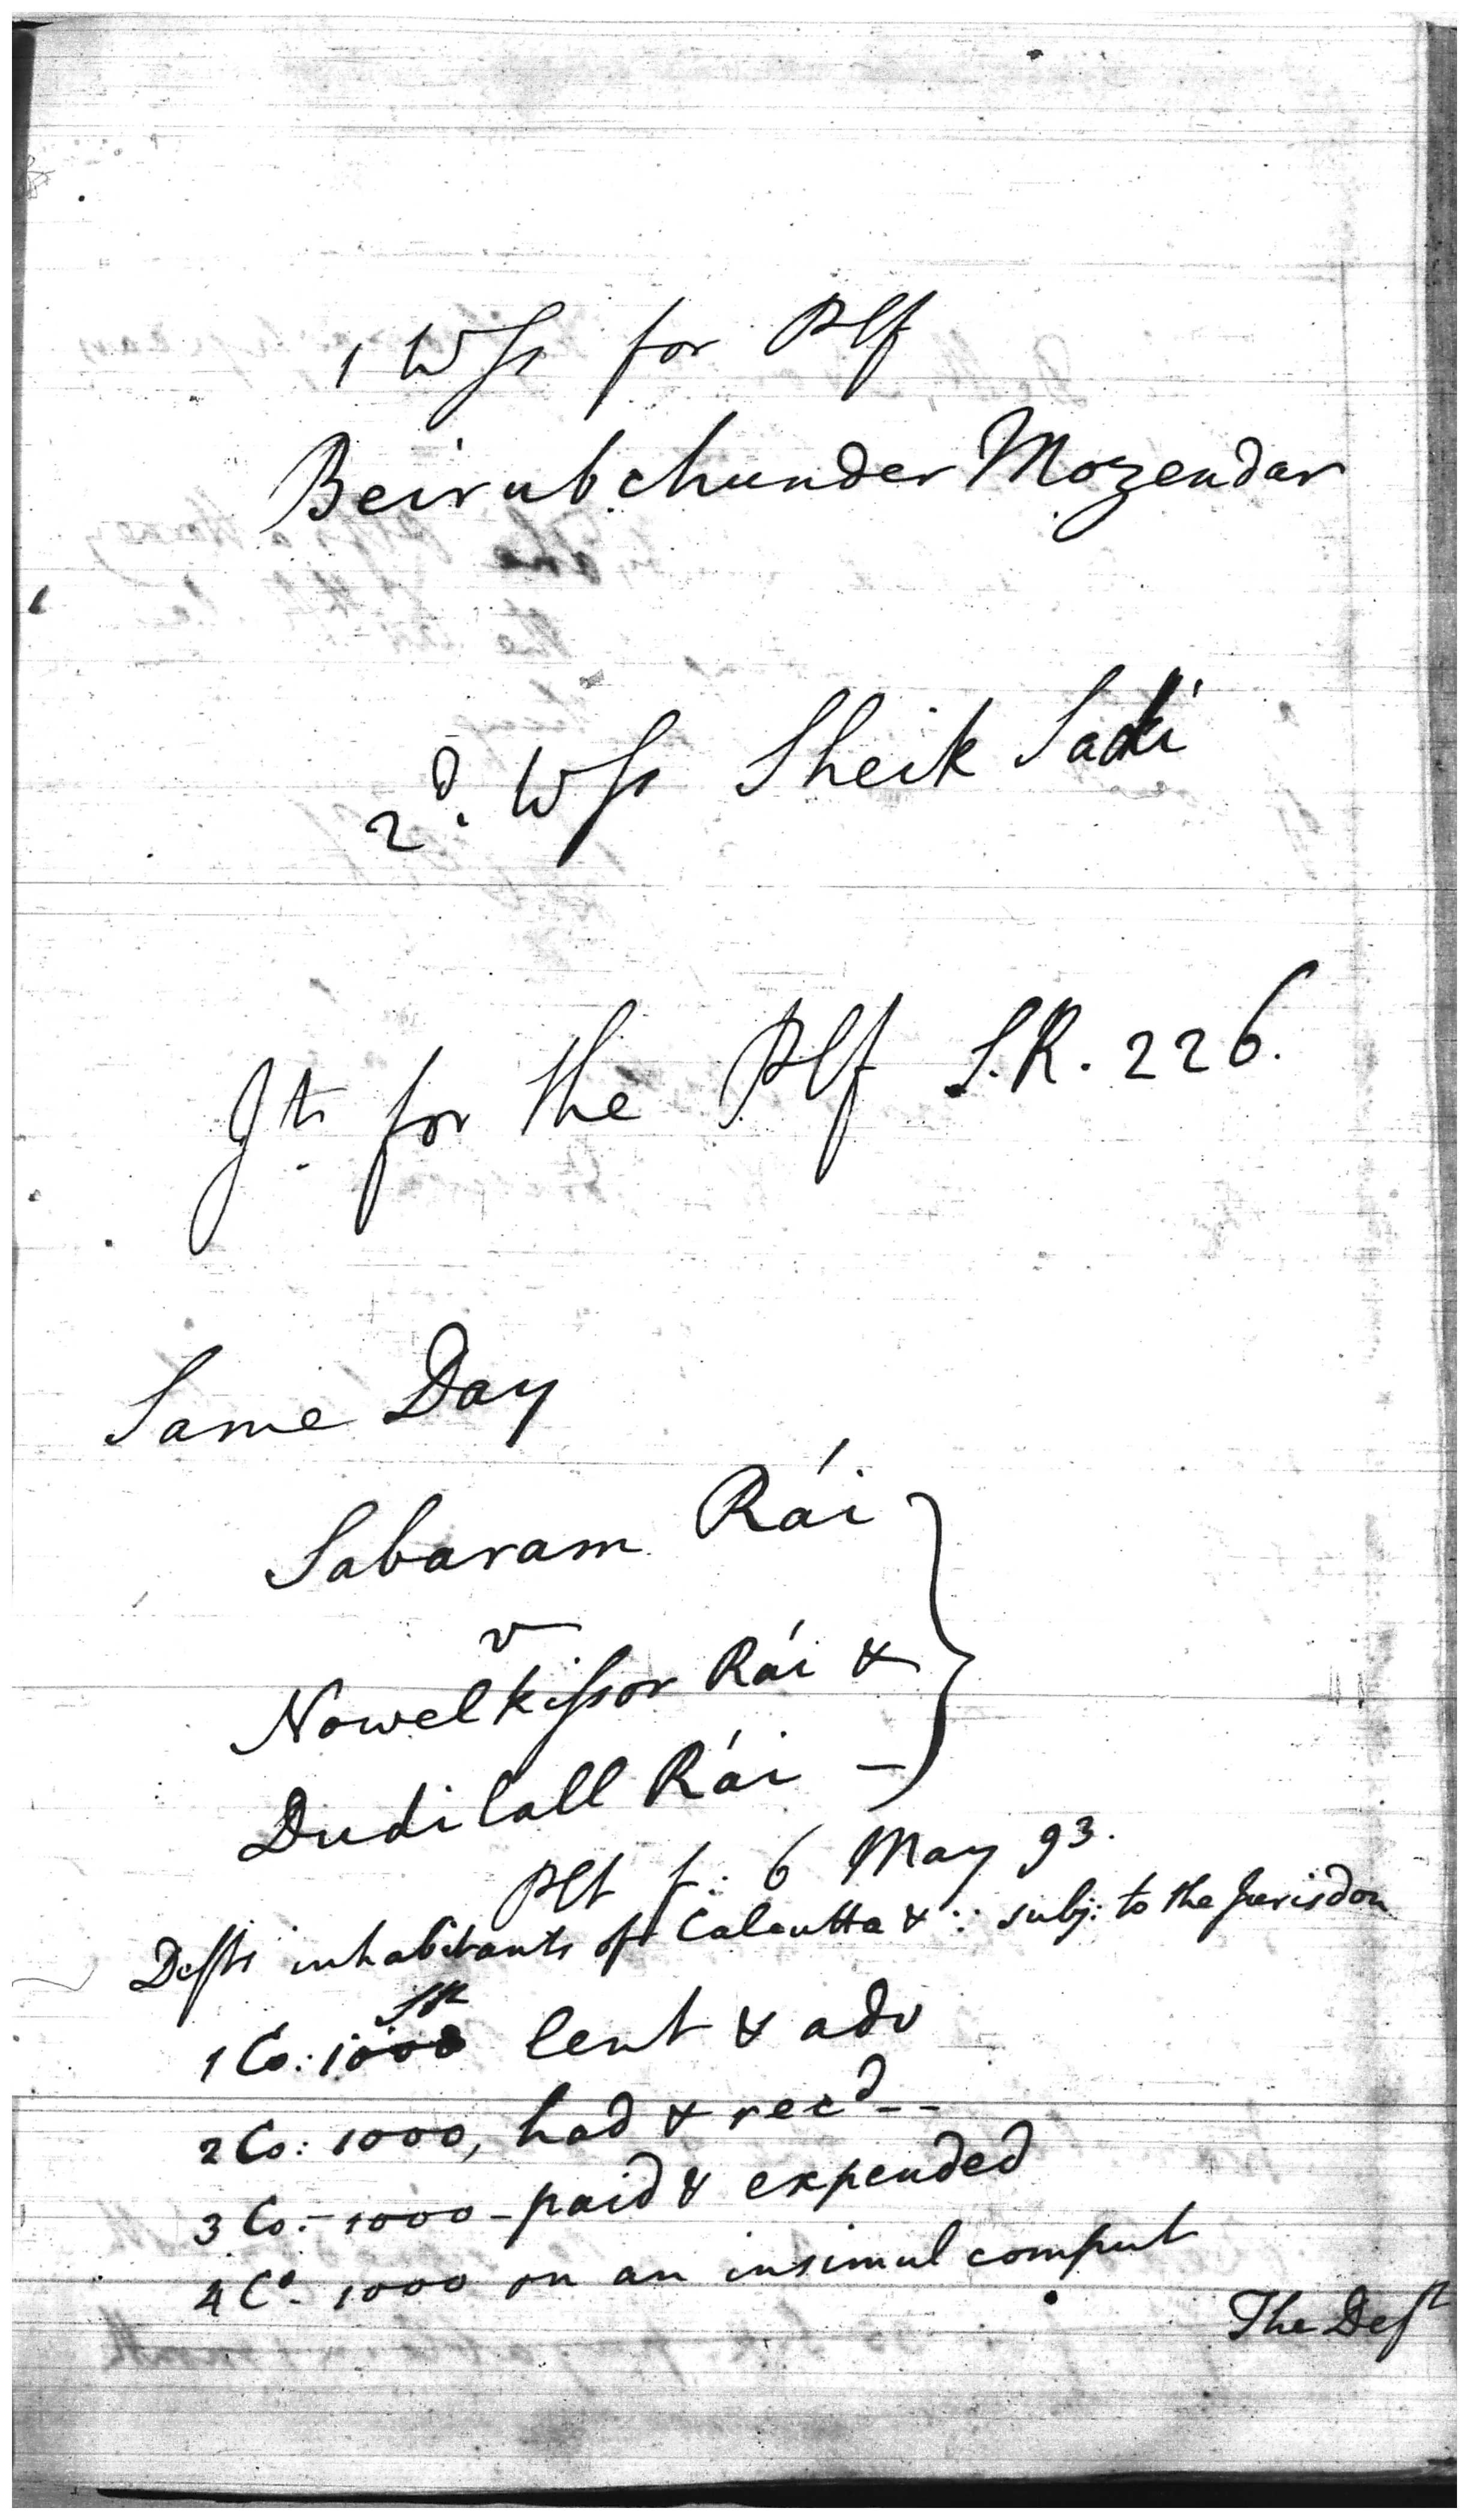 1 Wss for Plf
Beirubchunder Mozendar
2d. Wss Sheik Sadi
Jt. for the Plf S.R. 226.
Same Day
Sabaram Rái
v
Nowelkissor Rái &
Dudilall Rái –
Plt f: 6 May 93.
Defts inhabitants of Calcutta & ∵ subj: to the Jurisdon
SR
1 Co: 1000 lent & adv
2 Co: 1000, had & recd --
3 Co:- 1000 - paid & expended
4 Co- 1000 on an insimul comput
The Deft